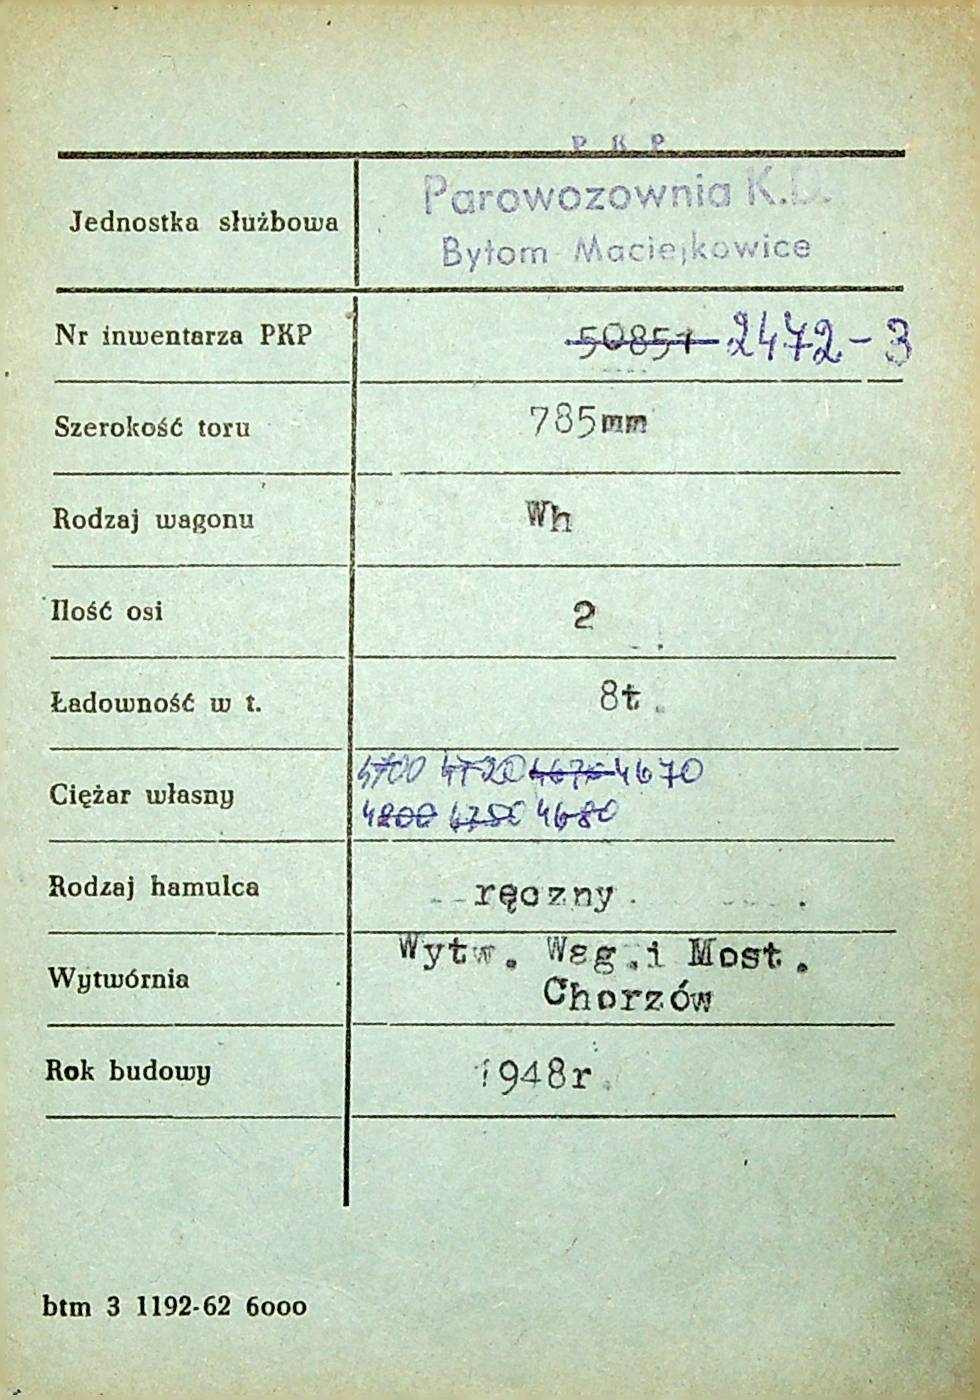 P K P
Jednostka służbowa Parowozownia K.D.
Bytom Maciejkowice
Nr inwentarza PKP 50851 2472-3
Szerokość toru 785mm
Rodzaj wagonu Wh
Ilość osi 2
Ładowność w t. 8t.
Ciężar własny 4700 4720 4675 4670
4800 4750 4680
Rodzaj hamulca ręczny.
Wytwórnia Wytw. Wag.i Most.
Chorzów
Rok budowy 1948r.
btm 3 1192-62 6ooo